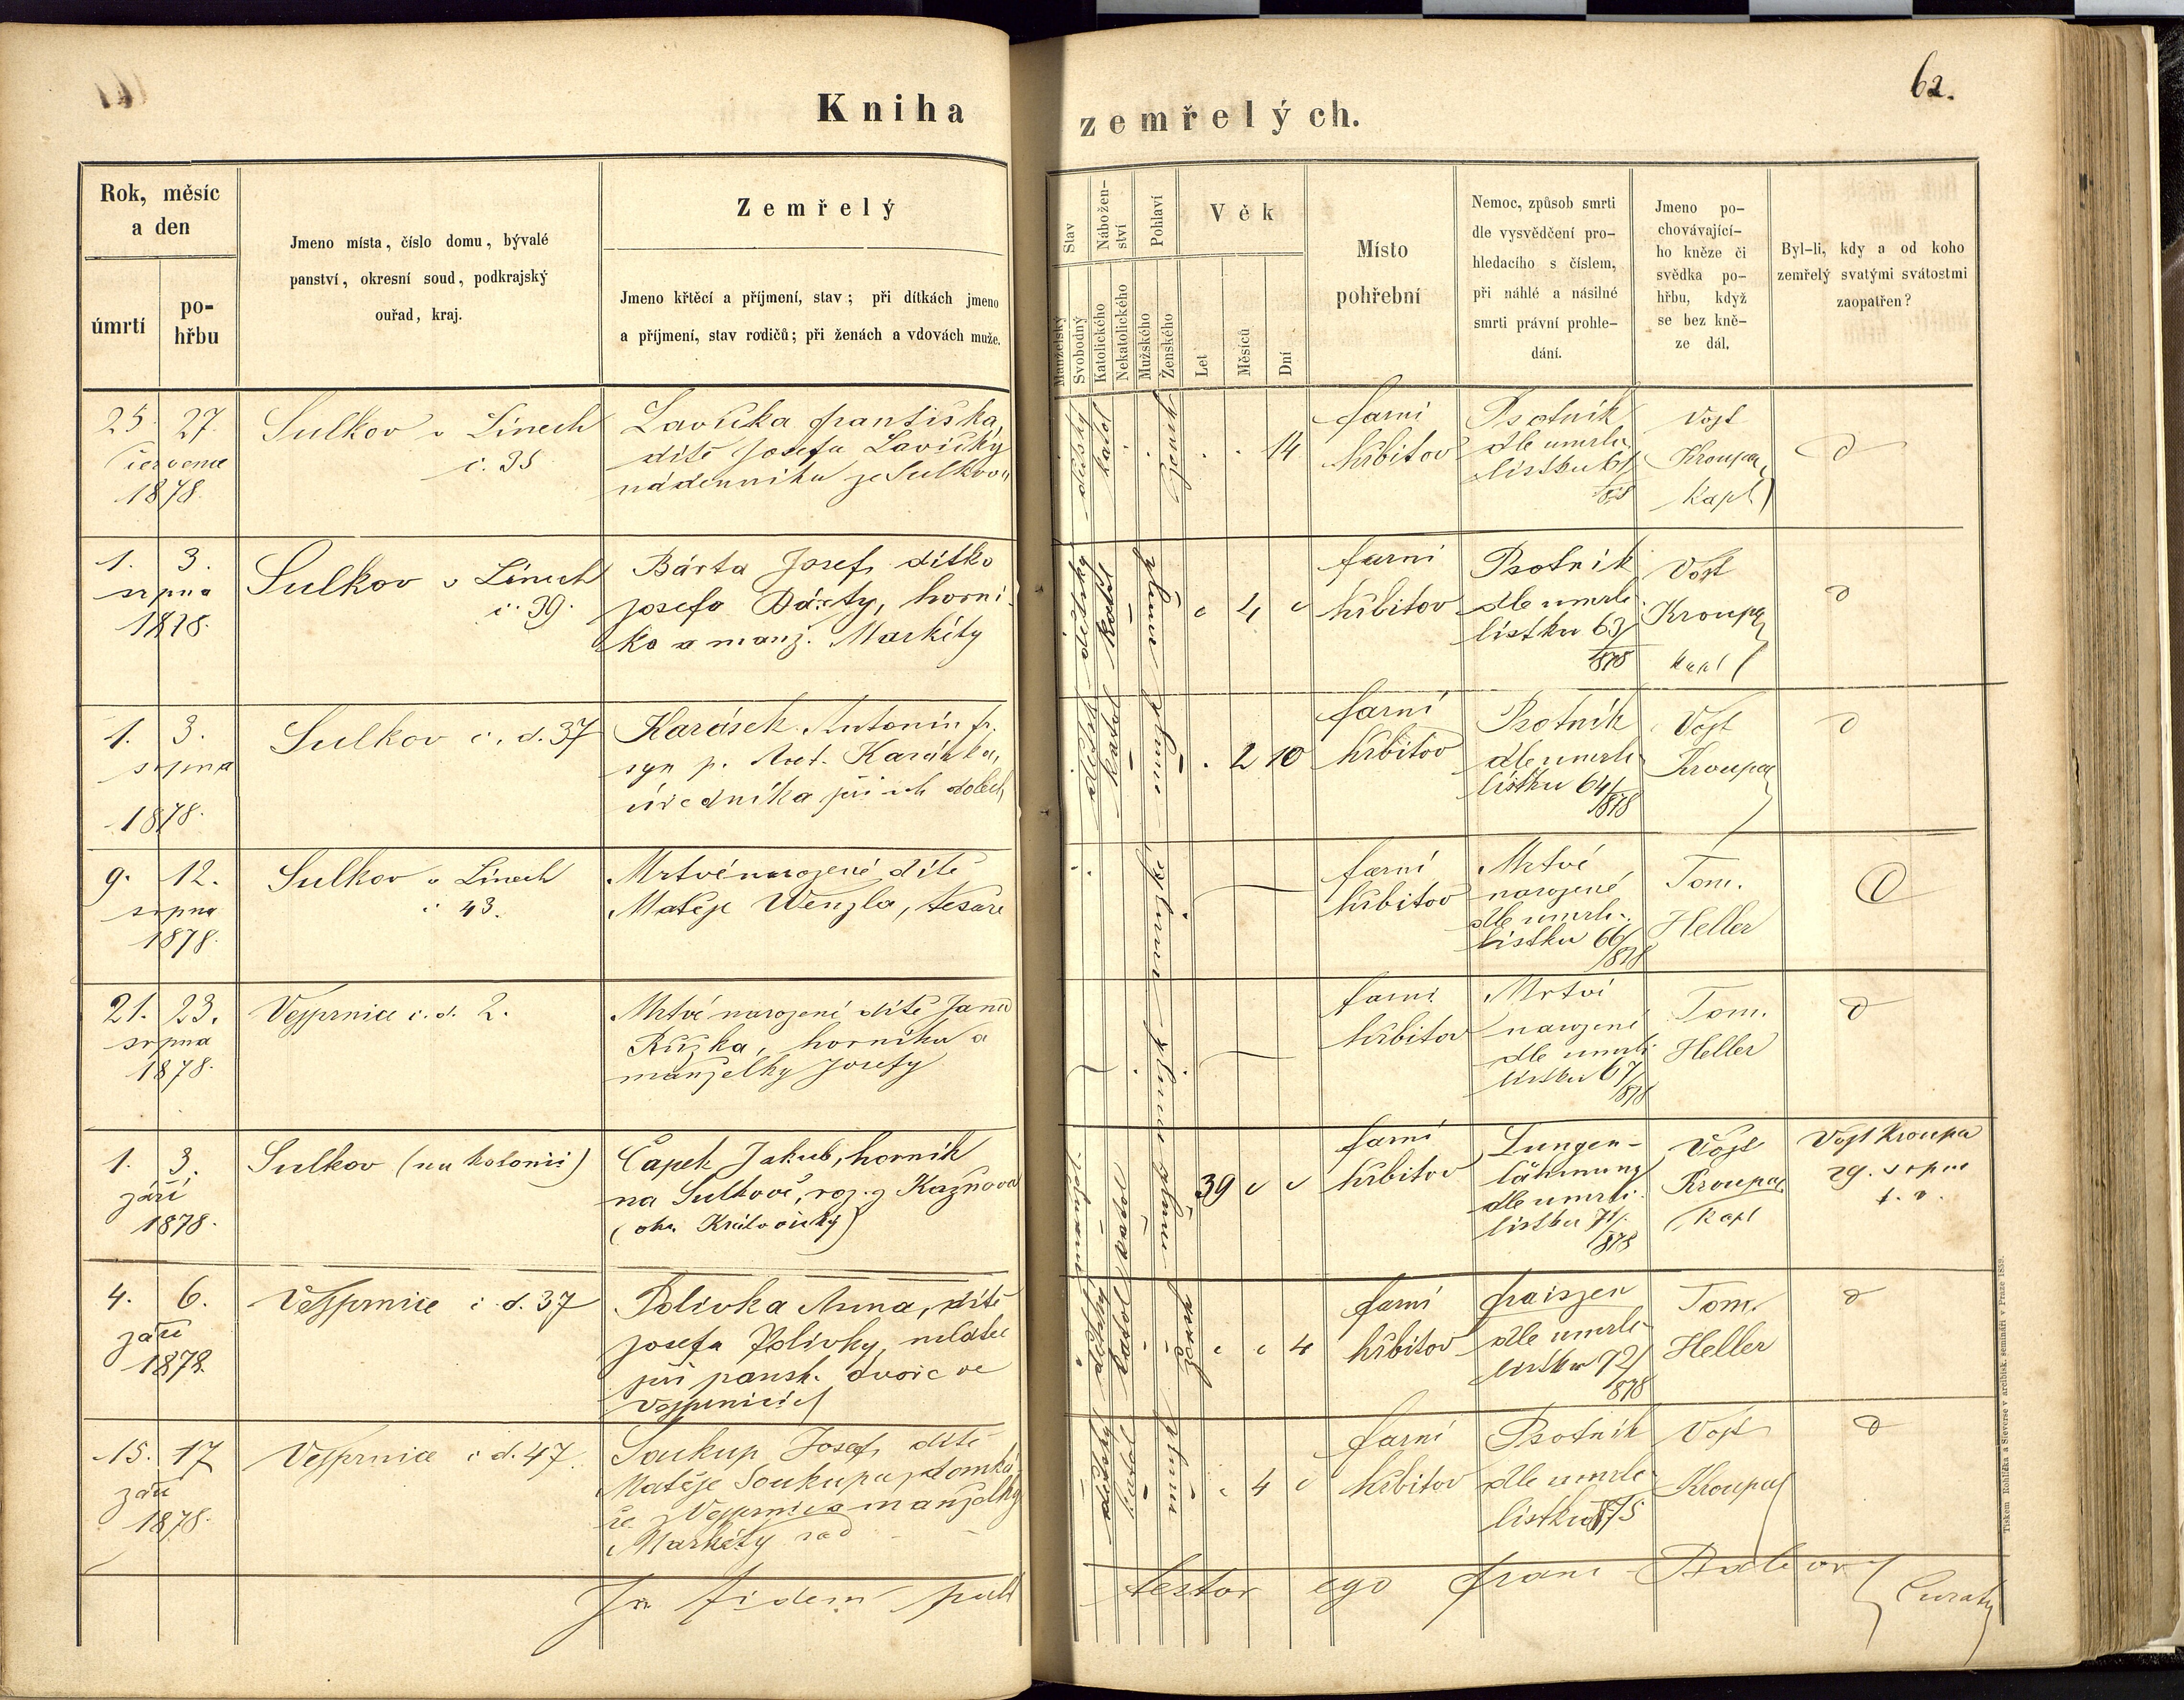 62.
Kniha zemřelých.
Rok, měsíc
a den
úmrtí
po-
hřbu
Jmeno místa, číslo domu, bývalé
panství, okresní soud, podkrajský
ouřad, kraj.
Zemřelý
Jmeno křtěcí a příjmení, stav; při dítkách jmeno
a příjmení, stav rodičů; při ženách a vdovách muže.
Stav
Manželský
Svobodný
Nábožen-
ství
Katolického
Nekatolického
Pohlaví
Mužského
Ženského
Věk
Let
Měsíců
Dní
Místo
pohřební
Nemoc, způsob smrti
dle vysvědčení pro-
hledacího s číslem,
při náhlé a násilné
smrti právní prohle-
dání.
Jmeno po-
chovávající-
ho kněze či
svědka po-
hřbu, když
se bez kně-
ze dál.
Byl-li, kdy a od koho
zemřelý svatými svátostmi
zaopatřen?
25. 27.
července
1878.
Sulkov u Línech
č. 35
Lavička Františka,
dítě Josefa Lavičky
nádenníka ze Sulkova
dětský
katol
ženské
14
farní
hřbitov
Psotník
dle umrlč
lístku 61/
Vojt
Kroupa
Kapl
1. 3.
srpna
1878.
Sulkov u Línech
č. 39.
Bárta Josef, dítko
Josefa Bárty, horní-
ka a manž. Markéty
dětský
katol
4
farní
hřbitov
Psotník
dle umrlč
lístku 63/
878
Vojt
Kroupa
kapl
1. 3.
srpna
1878.
Sulkov č. d. 37
Karásek Antonín Fr.
syn p. Ant. Karáska,
úředníka při uh. dolech
dětský
katol
2 10
farní
hřbitov
Psotník
dle umrlč
lístku 64/
878
Vojt
Kroupa
9. 12.
srpna
1878.
Sulkov u Línech
č 43.
Mrtvě narozené dítě
Matěje Wenzla, tesaře
farní
hřbitov
Mrtvě
narozené
dle umrlč-
lístku 66/
878
Tom.
Heller
21. 23.
srpna
1878.
Vejprnice č. d. 2.
Mrtvě narozené dítě Jana
Růžka, horníka a
manželky Josefy
farní
hřbitov
Mrtvě
narozené
dle umrlč
lístku 67/
878
Tom.
Heller
1. 3.
září
1878.
Sulkov (na kolonii)
Čapek Jakub, horník
na Sulkově, roz. z Kaznova
(okr. Královický)
katol
39
farní
hřbitov
Lungen-
lähmung
dle umrlč.
lístku 71/.
878
Vojt
Kroupa
Kapl
Vojt Kroupa
29. srpna
t. r.
4. 6.
září
1878
Vejprnice č. d. 37
Polívka Anna, dítě
Josefa Polívky, mlátce
při pansk. dvoře ve
Vejprnicích
dětský
katol
ženské
4
farní
hřbitov
fraiszen
dle umrlč-
lístku 72/
878
Tom.
Heller
15. 17
září
1878.
Vejprnice č d. 47.
Soukup Josef, dítě
Matěje Soukupa, domká-
ře z Vejprnic a manželky
Markéty
dětský
katol
4
farní
hřbitov
Psotník
dle umrlč-
lístku 75
Vojt
Kroupa
In fidem publ
testor ego Franc
Tiskem Rohlíčka a Sieverse v arcibisk. semináři v Praze 1859.